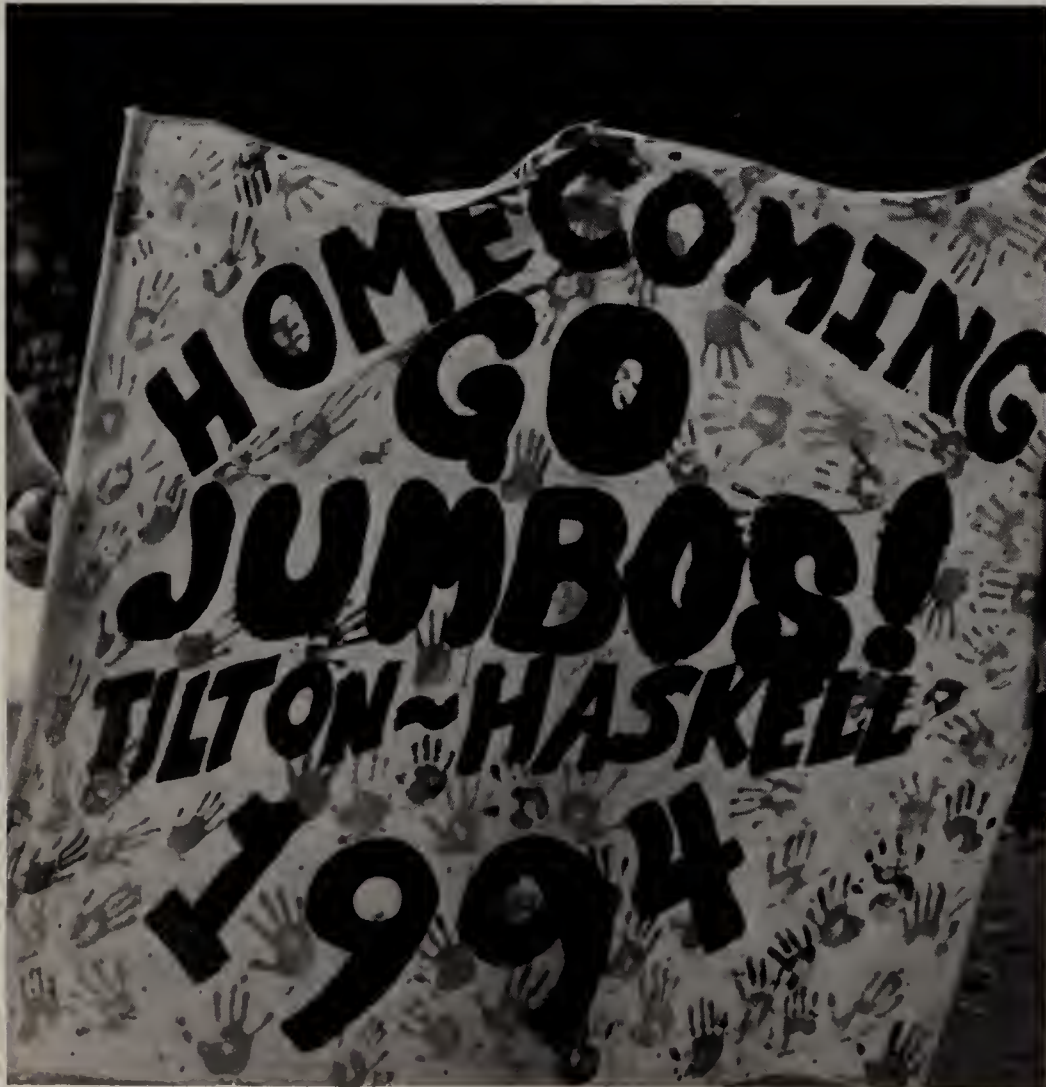 HOMECOMING
GO
JUMBOS!
TILTON~HASKELL
1994